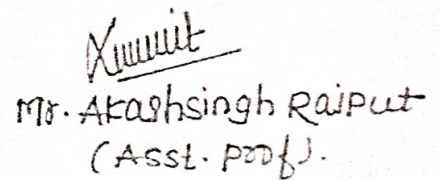 Mr. Akashsingh Rajput
(Asst. Prof).